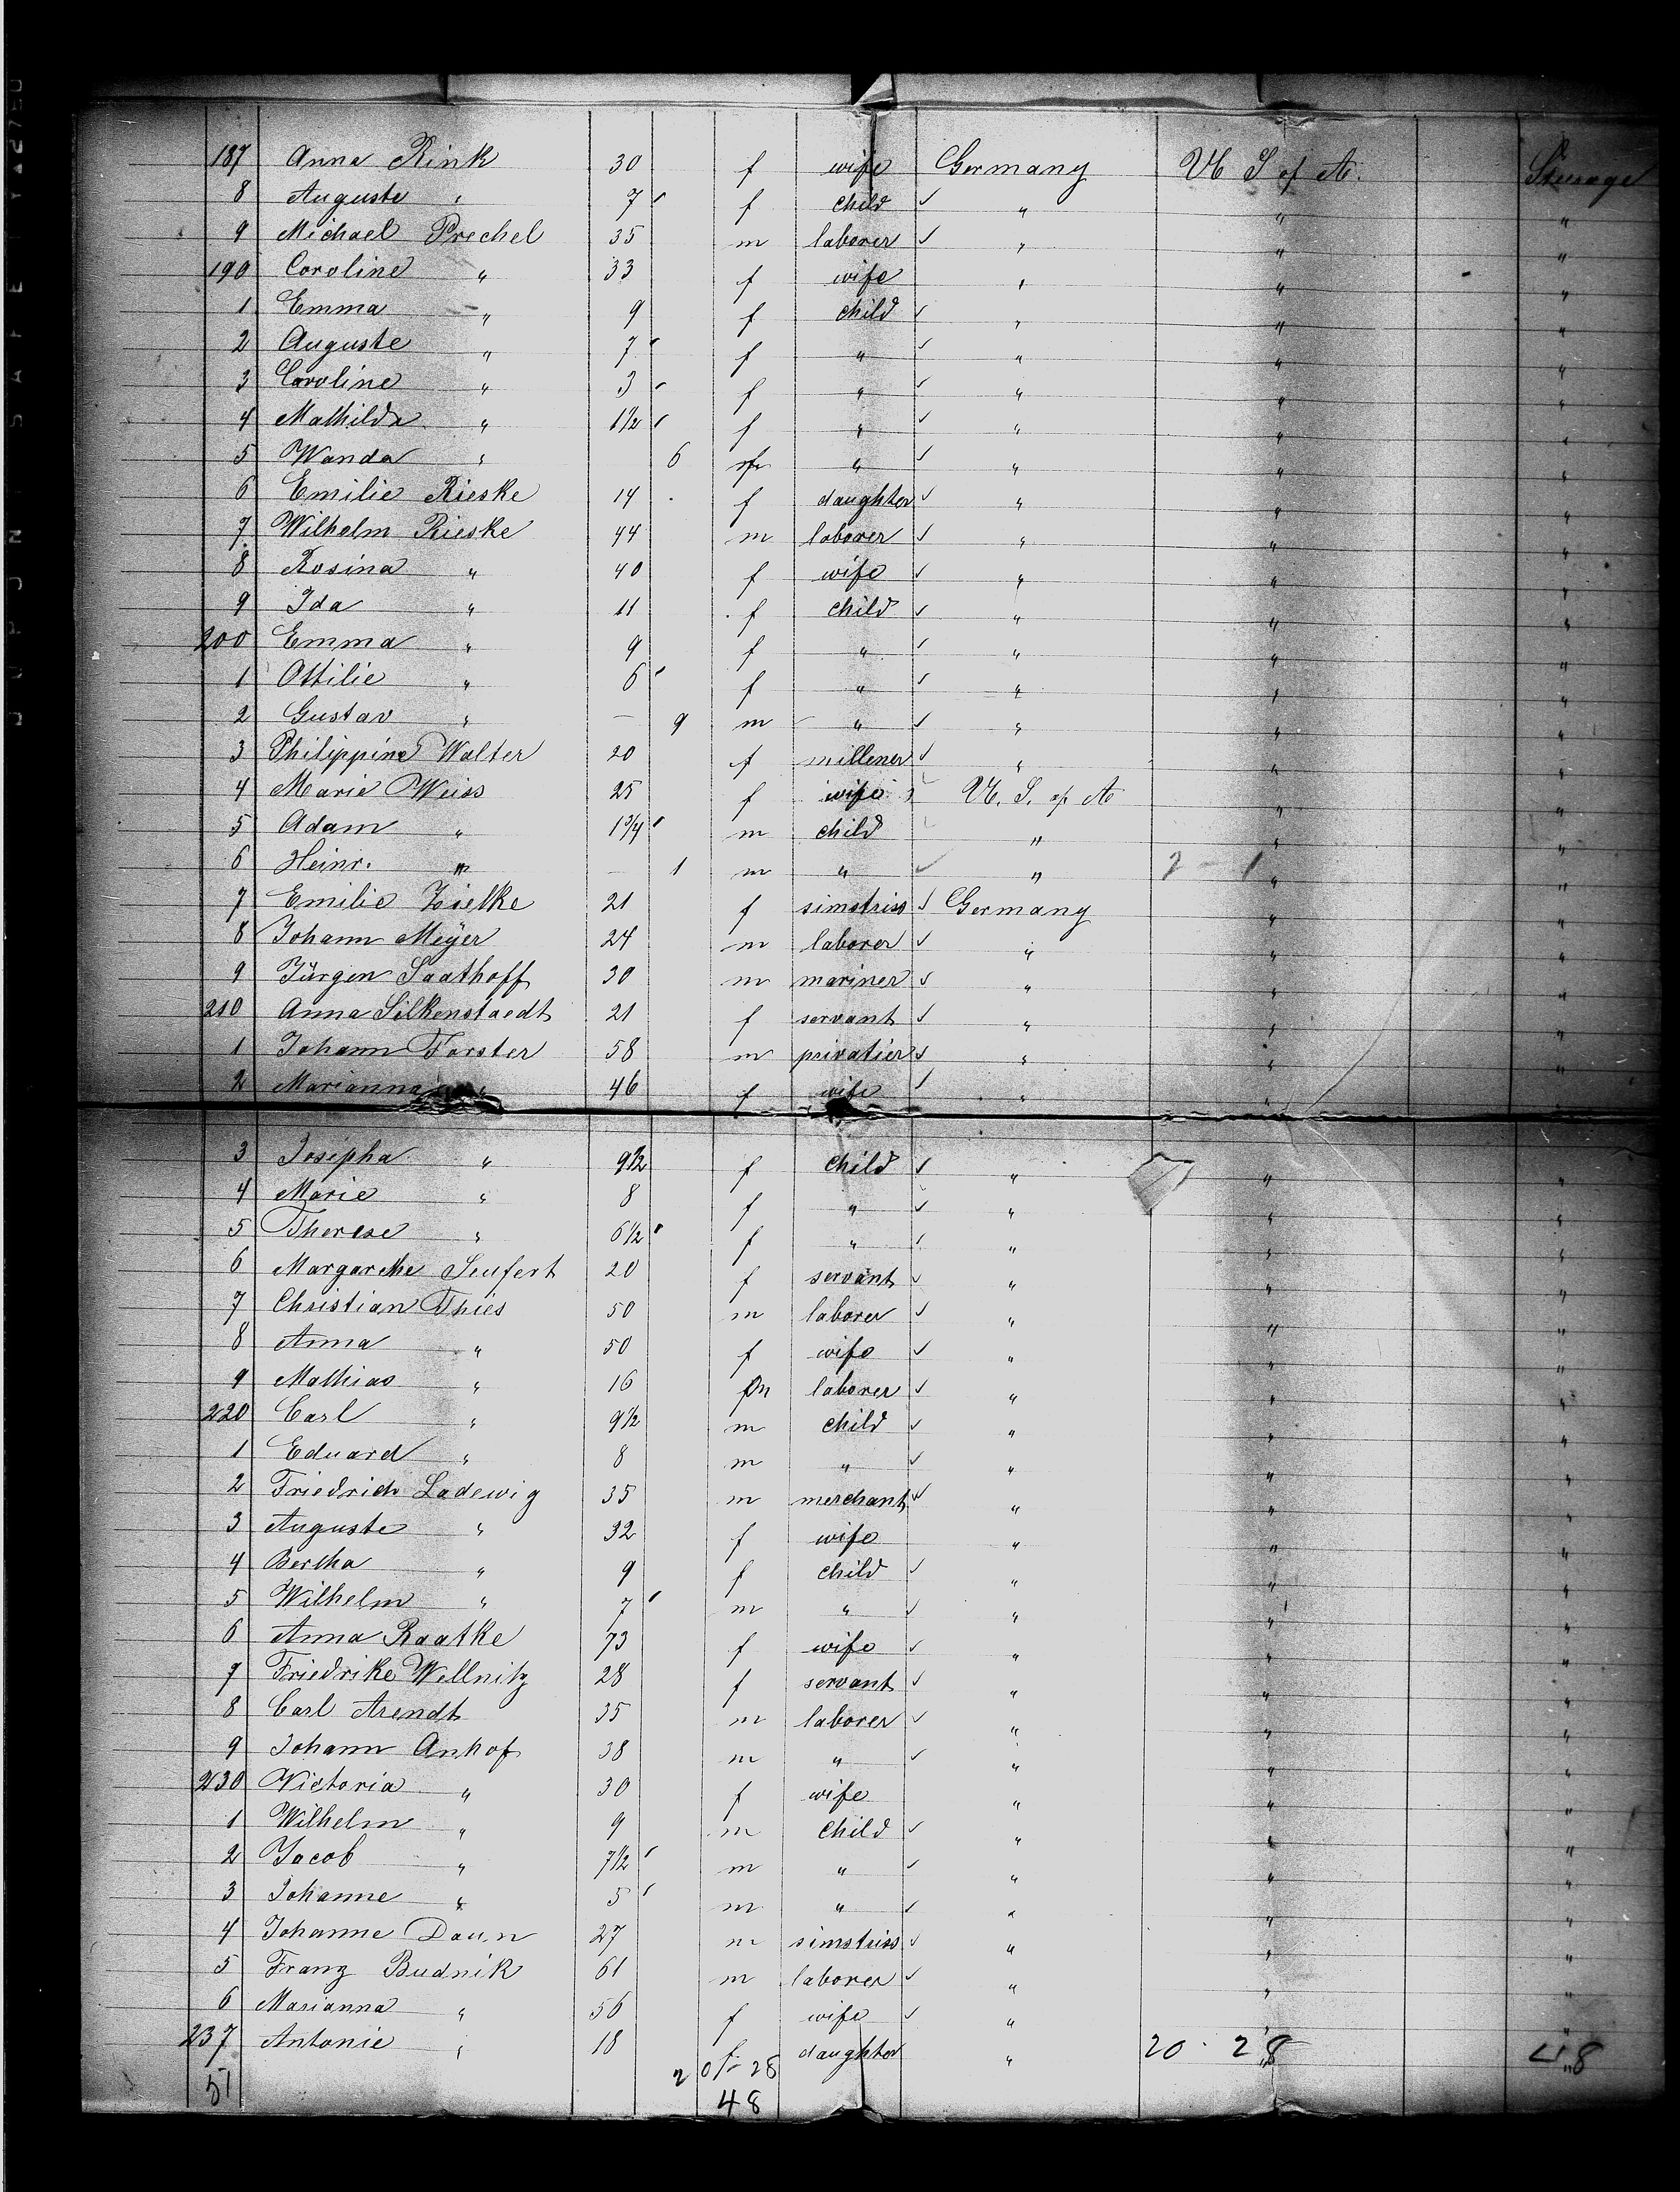 187 Anna Rink 30 f wife Germany U S of A. Steerage
8 Auguste " 7 f child " " "
9 Michael Prechel 35 m laborer " " "
190 Caroline " 33 f wife " " "
1 Emma " 9 f child " " "
2 Auguste " 7 f " " " "
3 Caroline " 3 f " " " "
4 Mathilda " 1 1/2 f " " " "
5 Wanda " 6 f " " " "
6 Emilie Rieske 14 f daughter " " "
7 Wilhelm Rieske 44 m laborer " " "
8 Rosina " 40 f wife " " "
9 Ida " 11 f child " " "
200 Emma " 9 f " " " "
1 Ottilie " 6 f " " " "
2 Gustav " — 9 m " " " "
3 Philippine Walter 20 f millener " " "
4 Marie Weiss 25 f wife U. S. of A " "
5 Adam " 1 3/4 m child " " "
6 Heinr. " — 1 m " " 2 - 1 " "
7 Emilie Zielke 21 f simstriss Germany " "
8 Johann Meÿer 24 m laborer " " "
9 Jürgen Saathoff 30 m mariner " " "
210 Anna Silkenstaedt 21 f servant " " "
1 Johann Forster 58 m privatier " " "
2 Marianna " 46 f wife " " "
3 Josepha " 9 1/2 f child " " "
4 Marie " 8 f " " " "
5 Therese " 6 1/2 f " " " "
6 Margarethe Seufert 20 f servant " " "
7 Christian Thies 50 m laborer " " "
8 Anna " 50 f wife " " "
9 Mathias " 16 m laborer " " "
220 Carl " 9 1/2 m child " " "
1 Eduard " 8 m " " " "
2 Friedrich Ladewig 35 m merchant " " "
3 Auguste " 32 f wife " " "
4 Bertha " 9 f child " " "
5 Wilhelm " 7 m " " " "
6 Anna Raatke 73 f wife " " "
7 Friedrike Wellnitz 28 f servant " " "
8 Carl Arendt 35 m laborer " " "
9 Johann Anhof 38 m " " " "
230 Victoria " 30 f wife " " "
1 Wilhelm " 9 m child " " "
2 Jacob " 7 1/2 m " " " "
3 Johanne " 5 m " " " "
4 Johanne Daun 27 m simstriss " " "
5 Franz Budnik 61 m laborer " " "
6 Marianna " 56 f wife " " "
237 Antonie " 18 f daughter " 20 - 28 " 48 "
51 20 - 28
48